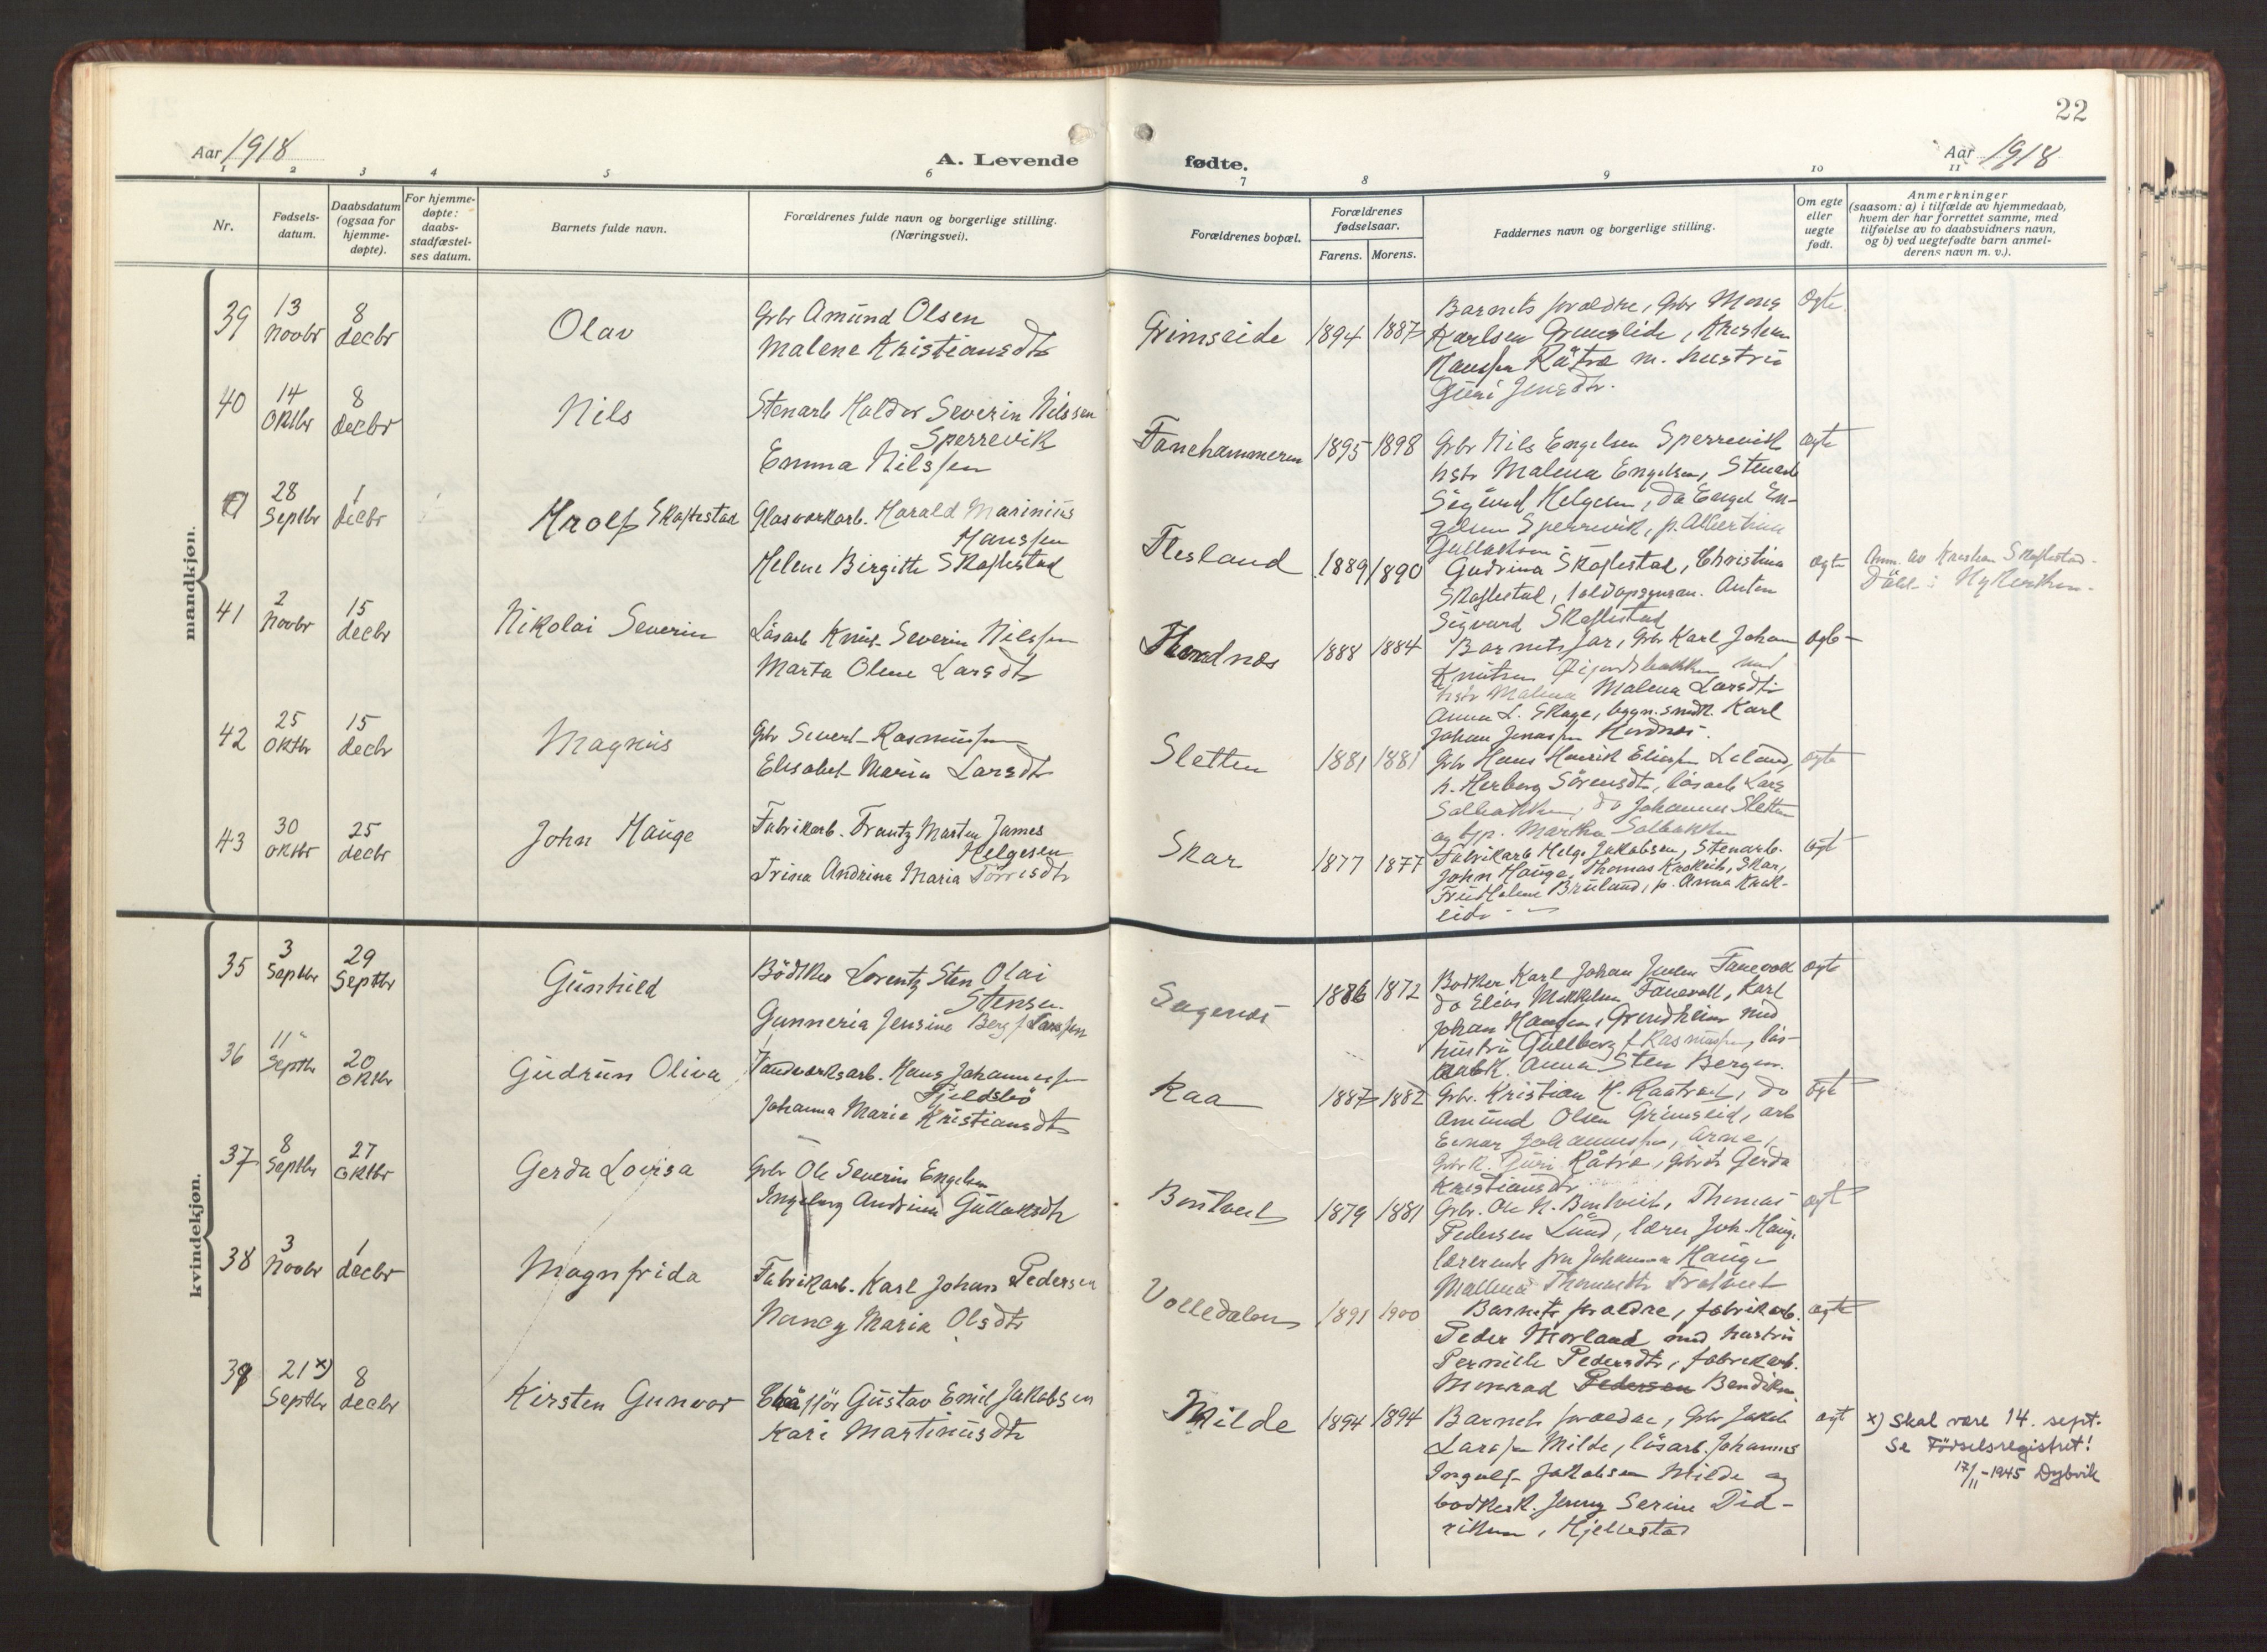 22
Aar 1918
A. Levende fødte.
Aar 1918
1 2 3 4 5 6 7 8 9 10 11
Nr.
Fødsels-
datum.
Daabsdatum
(ogsaa for
hjemme-
døpte).
For hjemme-
døpte:
daabs-
stadfæstel-
ses datum.
Barnets fulde navn.
Forældrenes fulde navn og borgerlige stilling.
(Næringsvei).
Forældrenes bopæl.
Forældrenes
fødselsaar.
Farens. Morens.
Faddernes navn og borgerlige stilling.
Om egte
eller
uegte
født.
Anmerkninger
(saasom: a) i tilfælde av hjemmedaab,
hvem der har forrettet samme, med
tilføielse av to daabsvidners navn,
og b) ved uegtefødte barn anmel-
derens navn m. v.).
mandkjøn.
39
13
Novbr
8
decbr
Olav
Gbr Amund Olsen
Malene Kristiansdtr
Grimseide
1894 1887
Barnets forældre, Gbr Mons
Karlsen Grimseide, Kristian
Hansen Råtræ m. hustru
Guri Jensdtr.
ægte
40
14
Oktbr
8
decbr
Nils
Stenarb Haldor Severin Nilssen
Sperrevik
Emma Nilssen
Fanehammeren
1895 1898
Gbr Nils Engelsen Sperrevik
hstr Malena Engelsen, Stenarb
Sigurd Helgesen, do Engel En-
gelsen Sperrevik, p. Albertina
Gullaksen
ægte
28
Septbr
1
decbr
Hrolf Skaftestad
Glasverkarb. Harald Marinius
Hanssen
Helene Birgitte Skaftestad
Flesland
1889 1890
Gudrina Skaftestad, Christina
Skaftestad, toldopsynsm. Anton
Sigvard Skaftestad
ægte
Anm. av Kristian Skaftestad.
41
2
Novbr
15
decbr
Nikolai Severin
Løsarb Knut Severin Nilssen
Marta Olene Larsdtr
1888 1884
Barnets far, Gbr Karl Johan
Knutsen
hstr Malena Malena Larsdtr
Anna L. Skage, bygn.snedk. Karl
Johan Jonassen Hordnes.
ægte
42
25
Oktbr
15
decbr
Magnus
Gbr Sivert Rasmussen
Elisabet Maria Larsdtr
Sletten
1881 1881
Gbr Hans Henrik Eliassen Leland,
h. Herborg Sörensdtr, løsarb Lars
Solbakken, do Johannes Sletten
og tjp. Martha Solbakken
ægte
43
30
Oktbr
25
decbr
John Hauge
Fabrikarb. Frantz Marten James
Helgesen
Trina Andrina Maria Törresdtr
Skar
1877 1877
Fabrikarb Helge Jakobsen, Stenarb.
John Hauge, Thomas Krokeide, Skar,
Fru Helene Bruland, p. Anna Krok-
eide
ægt
kvindekjøn.
35
3
Septbr
29
Septbr
Gunhild
Bödtker Lorentz Sten Olai
Stensen
Gunneria Jensine Berg f Larssen
Sagenes
1886 1872
Bodtker Karl Johan Jensen Fanevoll
do Elias Mikkelsen Fanevoll, Karl
Johan Hansen, Grundheim med
hustru Gullborg f Rasmussen, løs-
arbk. Anna Sten Bergen.
ægte
36
11
Septbr
20
Oktbr
Gudrun Oliva
Tandverksarb. Hans Johannessen
Fjeldsbö
Johanna Marie Kristiansdtr
Raa
1887 1882
Gbr. Kristian H. Raatræ, do
Amund Olsen Grimseid, arb
Einar Johannessen, Arne,
Gbrk. Guri Råtræ, Gbrdtr Gerda
Kristiansdtr
ægt
37
8
Septbr
27
Oktbr
Gerda Lovisa
Gbr Ole Severin Engelsen
Ingeborg Andrina Gullaksdtr
Bontveit
1879 1881
Gbr. Ole N. Bontveit, Thomas
Pedersen Lund, lærer Joh. Hauge
lærerinde fru Johanna Hauge
Mallena Thomasdtr
ægt
38
3
Novbr
1
decbr
Magnfrida
Fabrikarb. Karl Johan Pedersen
Nancy Maria Olsdtr
Volledalen
1891 1900
Barnets forældre, fabrikarb.
Peder Morland med hustru
Pernille Pedersdtr, fabrikarb.
Monrad Pedersen Bendiksen
ægte
39
21 x)
Septbr
8
decbr
Kirsten Gunvor
Chaufför Gustav Emil Jakobsen
Kari Martinusdtr
Milde
1894 1894
Barnets forældre, Gbr Jakob
Larssen Milde, løsarb. Johannes
Ingolf Jakobsen Milde og
bodtkerk. Jenny Serine Did-
riksen, Hjellestad
ægt
x) Skal være 14. sept.
Se Födselsregistret!
17/11-1945 Dybvik